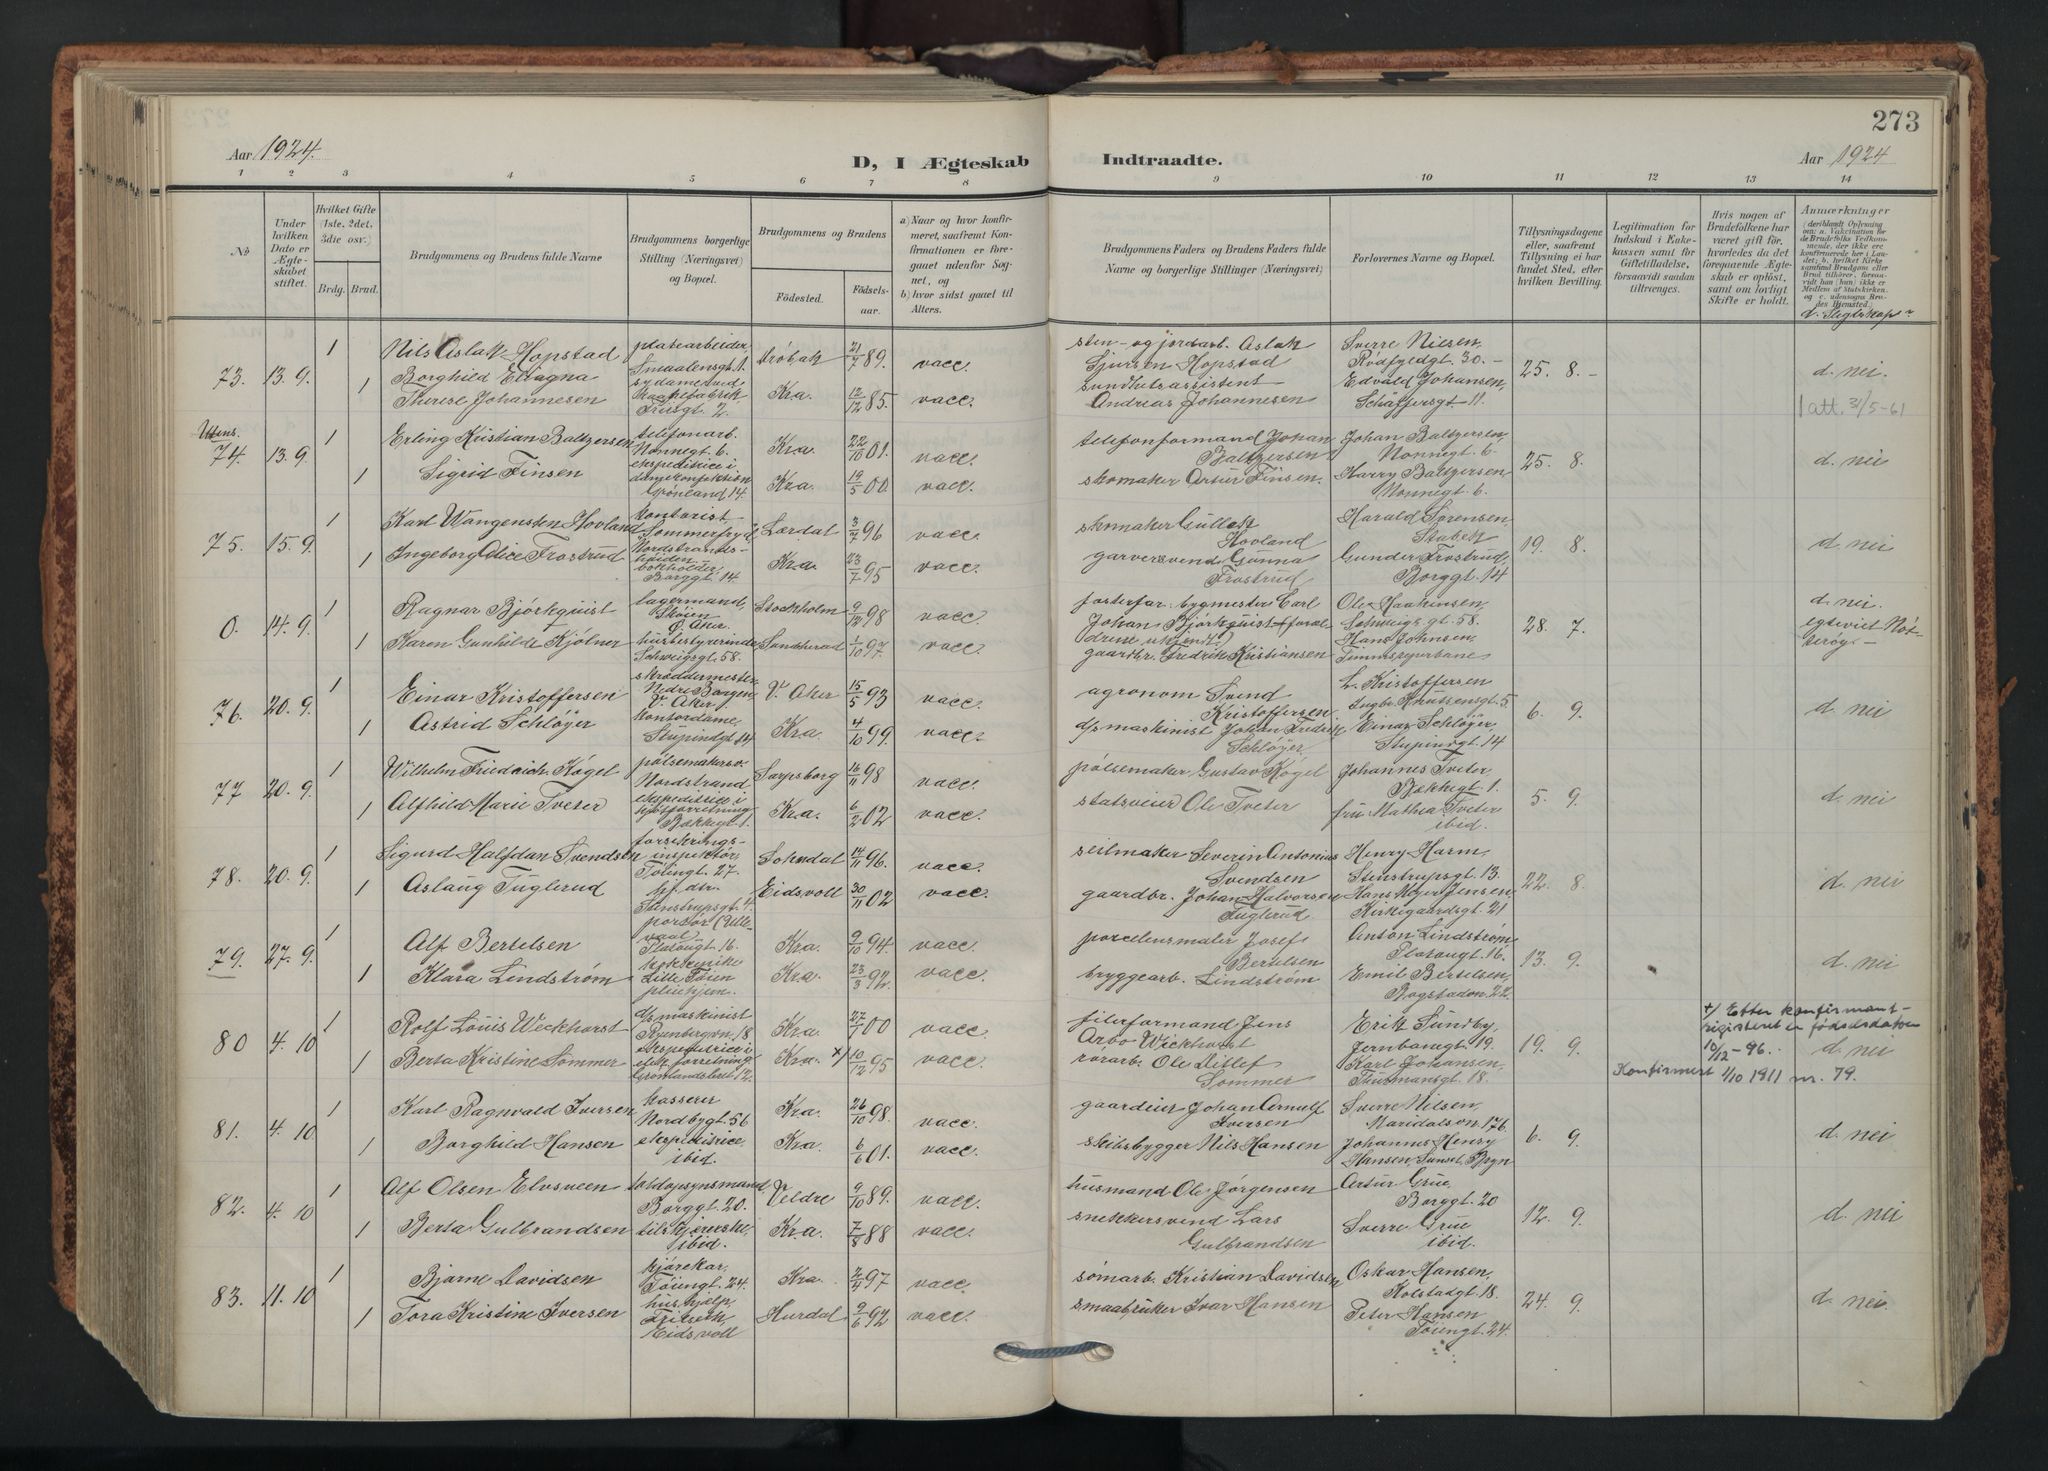 273
Aar 1924.
D, I Ægteskab
Indtraadte.
Aar 1924
1 2 3 4 5 6 7 8 9 10 11 12 13 14
No
Under hvilken Dato er Ægteskabet stiftet.
Hvilket Gifte (1ste, 2det, 3die osv.)
Brdg. Brud.
Brudgommens og Brudens fulde Navne
Brudgommens borgerlige Stilling (Næringsvei) og Bopæl.
Brudgommens og Brudens
Fødested.
Fødselsaar.
a) Naar og hvor konfirmeret, saafremt Konfirmationen er foregaaet udenfor Sognet, og
b) hvor sidst gaaet til Alters.
Brudgommens Faders og Brudens Faders fulde Navne og borgerlige Stillinger (Næringsvei)
Forlovernes Navne og Bopæl.
Tillysningsdagene eller, saafremt Tillysning ei har fundet Sted, efter hvilken Bevilling.
Legitimation for Indskud i Enkekassen samt for Giftetilladelse, forsaavidt saadan tiltrænges.
Hvis nogen af Brudefolkene har været gift før, hvorledes da det foregaaende Ægteskab er opløst, samt om lovligt Skifte er holdt.
Anmærkninger
d. Slegtskap
73. 13. 9. 1
Nils Aslak Hopstad
platearbeider Smaalensgt. 1.
Drøbak 21/7 89. vacc.
sten- og jordarb. Aslak Sjursen Hopstad
Sverre Nielsen, Rødfyldgt 30. -
25. 8. -
d. nei.
1 Borghild Eliagna Therese Johannesen
Kra. 12/12 85. vacc.
sundhetsassistent Andreas Johannesen
Edvald Johansen, Schäffersgt. 11.
1 att. 31/5-61
74. 13. 9. 1
Erling Kristian Baltzersen
telefonarb. Nonnegt. 6.
Kra. 22/10 01. vacc.
telefonformand Johan Baltzersen
Johan Baltzersen Nonnegt. 6
25. 8.
d. nei
1 Sigrid Finsen
ekspeditrice i Grønland 14
Kra. 19/5 00. vacc.
skomaker Artur Finsen.
Harry Baltzersen, Nonnegt. 6.
75. 15. 9. 1
Karl Wangensten Hovland
kontorist Sommerfryd, Nordstrandshøiden
Lærdal 3/7 96 vacc.
skomaker Gullek Hovland
Harald Sørensen, Stabek
19. 8.
d. nei
1 Ingeborg Alice Frostrud
bokholder, Borggt. 14
Kra. 23/7 95 vacc.
garversvend Gunna Frostrud
Gunder Frostrud, Borggt. 14
0. 14. 9. 1
Ragnar Bjørkquist
lagermand, Skøien Ø. Aker.
Stockholm 9/12 98 vacc.
fosterfar: bygmester Carl Johan Bjørkquist
Ole Haakinsen, Schweigsgt. 58.
28. 7.
d. nei.
1 Karen Gunhilde Kjølner
husbestyrerinde Schweigsgt. 58.
Sandsherad 1/10 97. vacc.
gaardbr. Fredrik Kristiansen
Hans Johnsen,
76. 20. 9. 1
Einar Kristoffersen
skræddermester Nedre Borgen, V. Aker
V. Aker 15/5 93 vacc.
agronom Svend Kristoffersen
L. Kristoffersen Ingbr. Knutsensgt. 5
6. 9.
d. nei
1 Astrid Schløyer
kontordame, Stupindgt. 14
Kra. 4/10 99. vacc.
d/s maskinist Johan Fredrik Schløyer
Einar Schløyer, Stupinsgt. 14
77 20. 9. 1
Wilhelm Friedrich Kögel
pølsemakersv. Nordstrand
Sarpsborg 16/11 98 vacc.
pølsemaker Gustav Kögel
Johannes Tveter, Bækkegt. 1.
5. 9.
d. nei
1 Alfhild Marie Tveter
ekspeditrice i Bækkegt. 1.
Kra. 6/2 02 vacc.
statsveier Ole Tveter
fru Mathea Tveter ibid.
78. 20. 9. 1
Sigurd Halfdan Svendsen
forsikringsinspektør, Tøiengt. 27.
Sokndal 14/11 96. vacc.
seilmaker Severin Antonius Svendsen
Henry Harm, Stenstrupsgt. 13.
22. 8.
d. nei
1 Aslaug Fuglerud
hj. dtr. Stenstrupsgt. 4.
Eidsvoll 30/11 02 vacc.
gaardbr. Johan Halvorsen Fuglerud
Hans Meyer Jensen Kirkegaardsgt. 21
79. 27. 9. 1
Alf Bertelsen
portør (Ullevaal) Platougt. 16.
Kra. 9/10 94. vacc.
porcelensmaler Josef Bertelsen
Anton Lindstrøm, Platougt. 16.
13. 9.
d. nei
1 Klara Lindstrøm
kokkepike Lille Tøien pleiehjem.
Kra. 23/3 92. vacc.
bryggearb. Lindstrøm
Emil Bertelsen, Bogstadvn. 22.
80 4. 10 1
Rolf Louis Weckhorst
d/s maskinist Rynbergvn. 18.
Kra. 27/1 00 vacc.
filerformand Jens Arbo Weckhorst
Erik Sundby, Jernbanegt. 19.
19. 9.
+/ Efter konfirmant-registeret er fødselsdatoen 10/12-96.
d. nei
1 Berta Kristine Sommer
ekspeditrice i elek. forretning Grønlandsleret 12.
Kra. x/ 10/12 95 vacc.
rørarb. Ole Ditlef Sommer
Karl Johansen, Thurmansgt. 18.
Konfirmert 1/10 1911 nr. 79.
81. 4. 10 1
Karl Ragnvald Iversen
kasserer Nordbygt. 56
Kra. 26/10 98. vacc.
gaardeier Johan Arnulf Iversen
Sverre Nilsen, Maridalsvn. 176.
6. 9.
d. nei
1 Borghild Hansen
ekspeditrice, ibid.
Kra. 6/6 01. vacc.
skibsbygger Nils Hansen
Johannes Henry Hansen, Sunset, Bryn
82. 4. 10 1
Alf Olsen Elvsveen
toldopsynsmand Borggt. 20.
Veldre 9/10 89. vacc.
husmand Ole Jørgensen
Artur Grue, Borggt. 20
12. 9.
d. nei
1 Berta Gulbrandsen
tilskjererske, ibid.
Kra. 7/8 88 vacc.
snekkersvend Lars Gulbrandsen
Sverre Grue ibid.
83. 11. 10 1
Bjarne Davidsen
kjørekar, Tøiengt. 24
Kra. 2/4 97 vacc.
tømarb. Kristian Davidsen
Oskar Hansen, Kolstadgt. 18.
24. 9.
d. nei.
1 Tora Kristine Iversen
hushjælp, Eidsvoll
Hurdal 9/6 92 vacc.
smaabruker Ivar Hansen
Peter Hansen Tøiengt. 24.